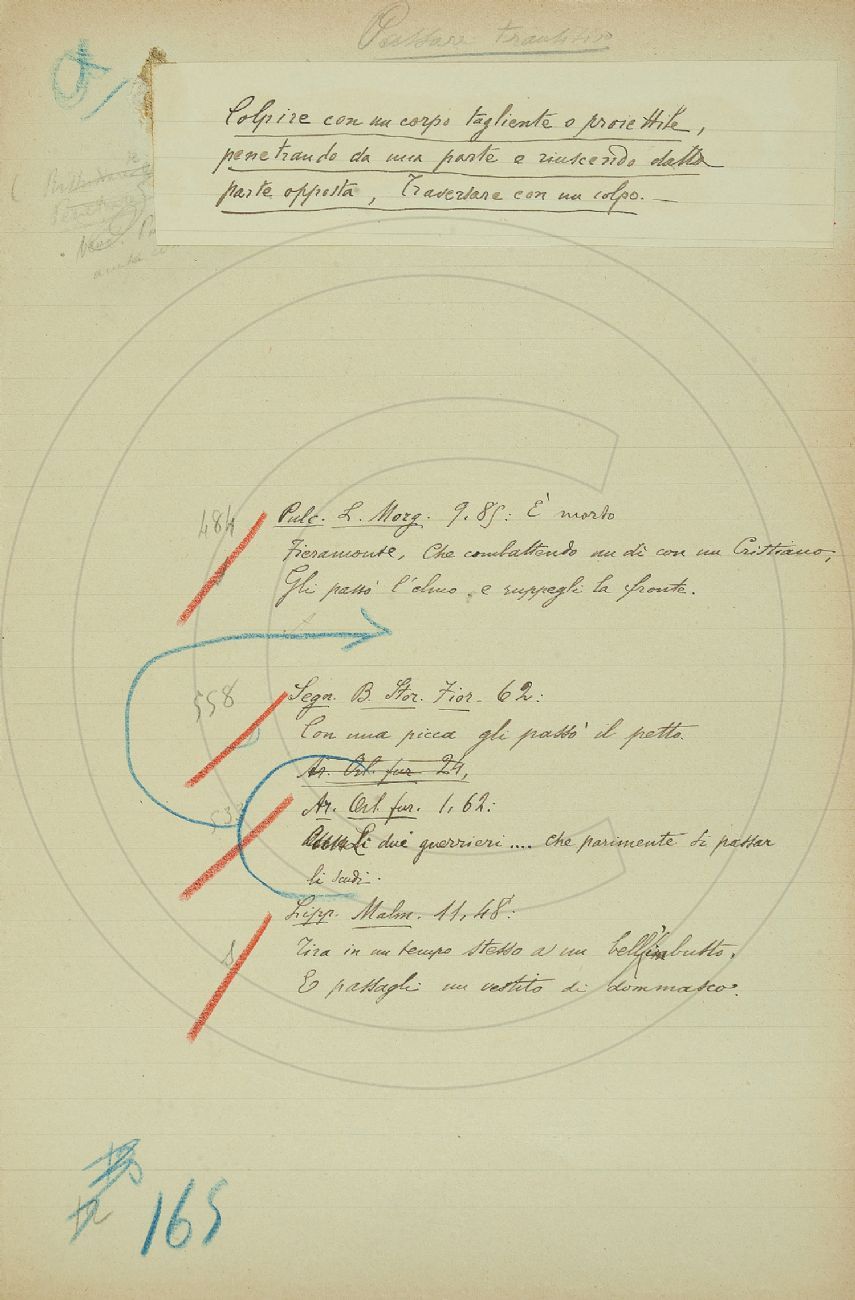 Passare transitivo
Colpire con un corpo tagliente o proiettile,
penetrando da una parte e riuscendo dalla
parte opposta, Traversare con un colpo. —
484
Pulc. L. Morg. 9. 85: È morto
Fieramonte, Che combattendo un dì con un Cristiano,
Gli passò l'elmo, e ruppegli la fronte.
558
Segn. B. Stor. Fior. 62:
Con una picca gli passò il petto.
Ar. Orl. fur. 24,
533
Ar. Orl. fur. 1, 62:
Li due guerrieri .... che parimente si passar
li scudi.
Lipp. Malm. 11, 48:
Tira in un tempo stesso a un bell'imbusto,
E passagli un vestito di dommasco.
12
165